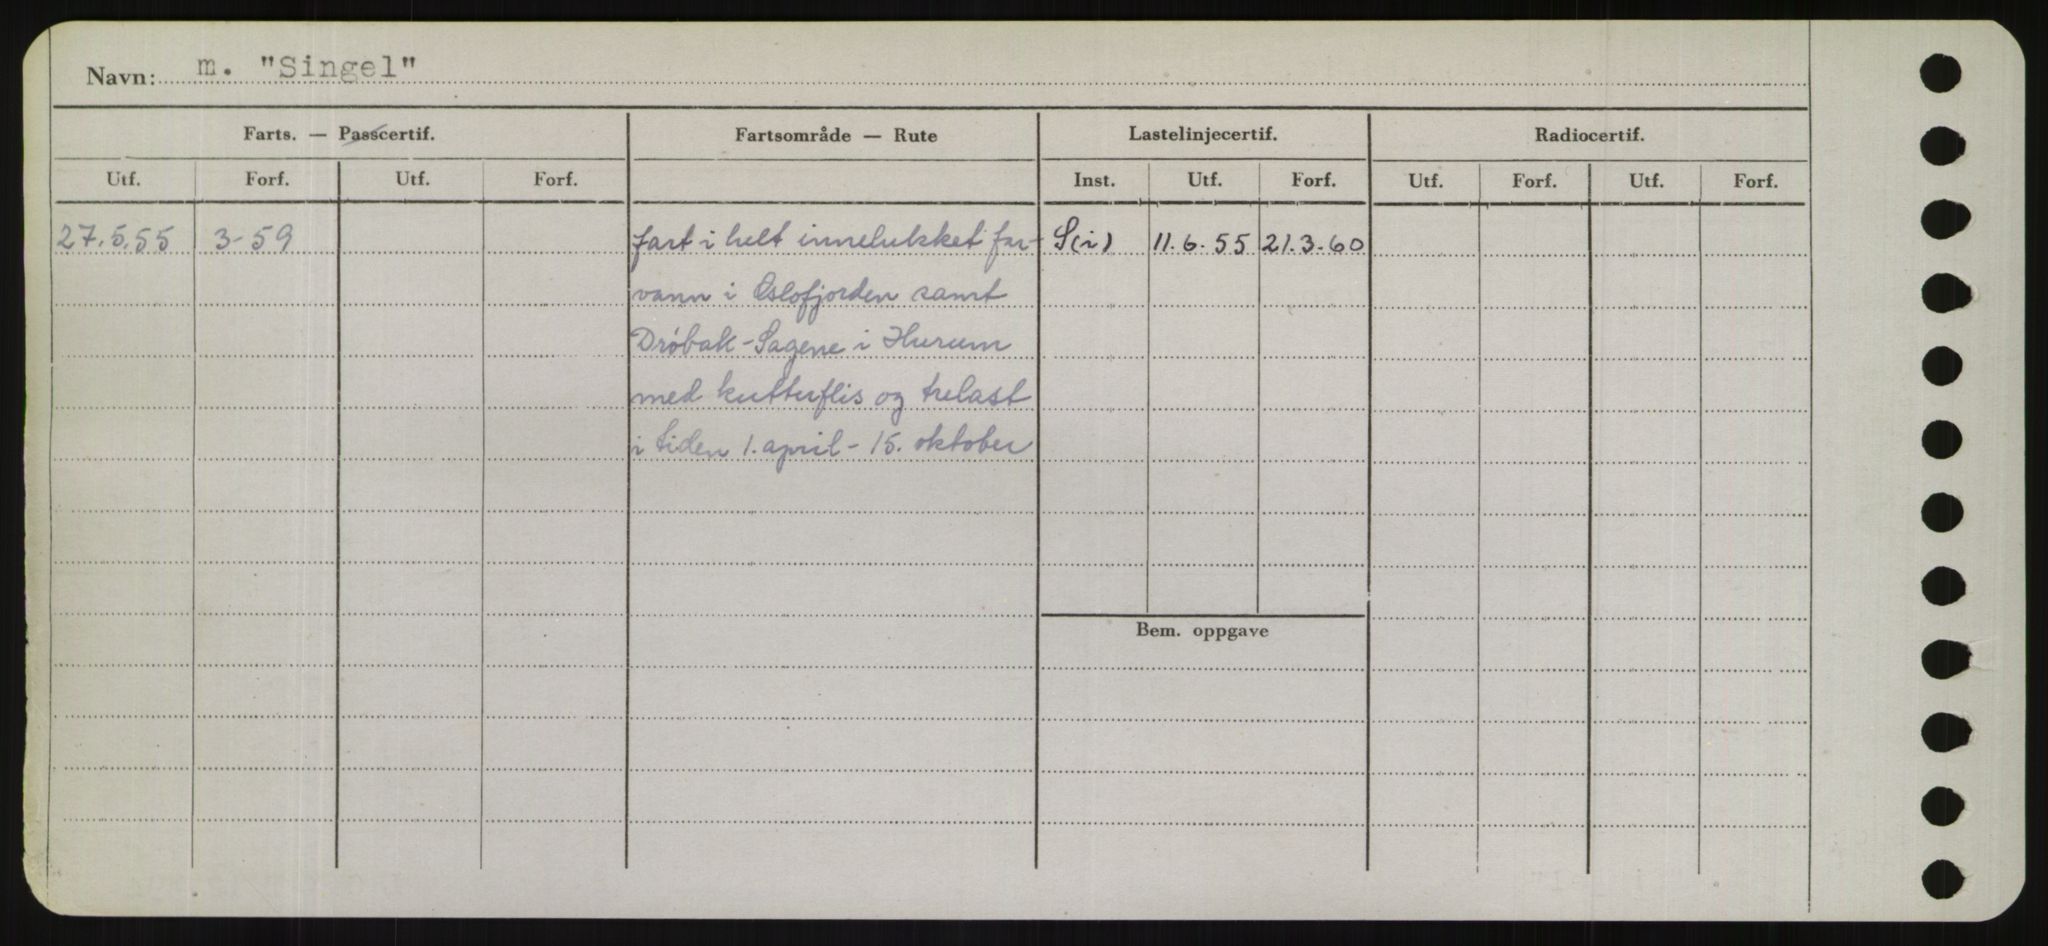 Navn: m. "Singel"
Farts. — Passcertif. Fartsområde — Rute Lastelinjecertif. Radiocertif.
Utf. Forf. Utf. Forf. Inst. Utf. Forf. Utf. Forf. Utf. Forf.
27.5.55 3-59 fart i helt innelukket far- S(i) 11.6.55 21.3.60
vann i Oslofjorden samt
Drøbak-Sagene i Hurum
med kutterflis og trelast
i tiden 1. april - 15. oktober
Bem. oppgave